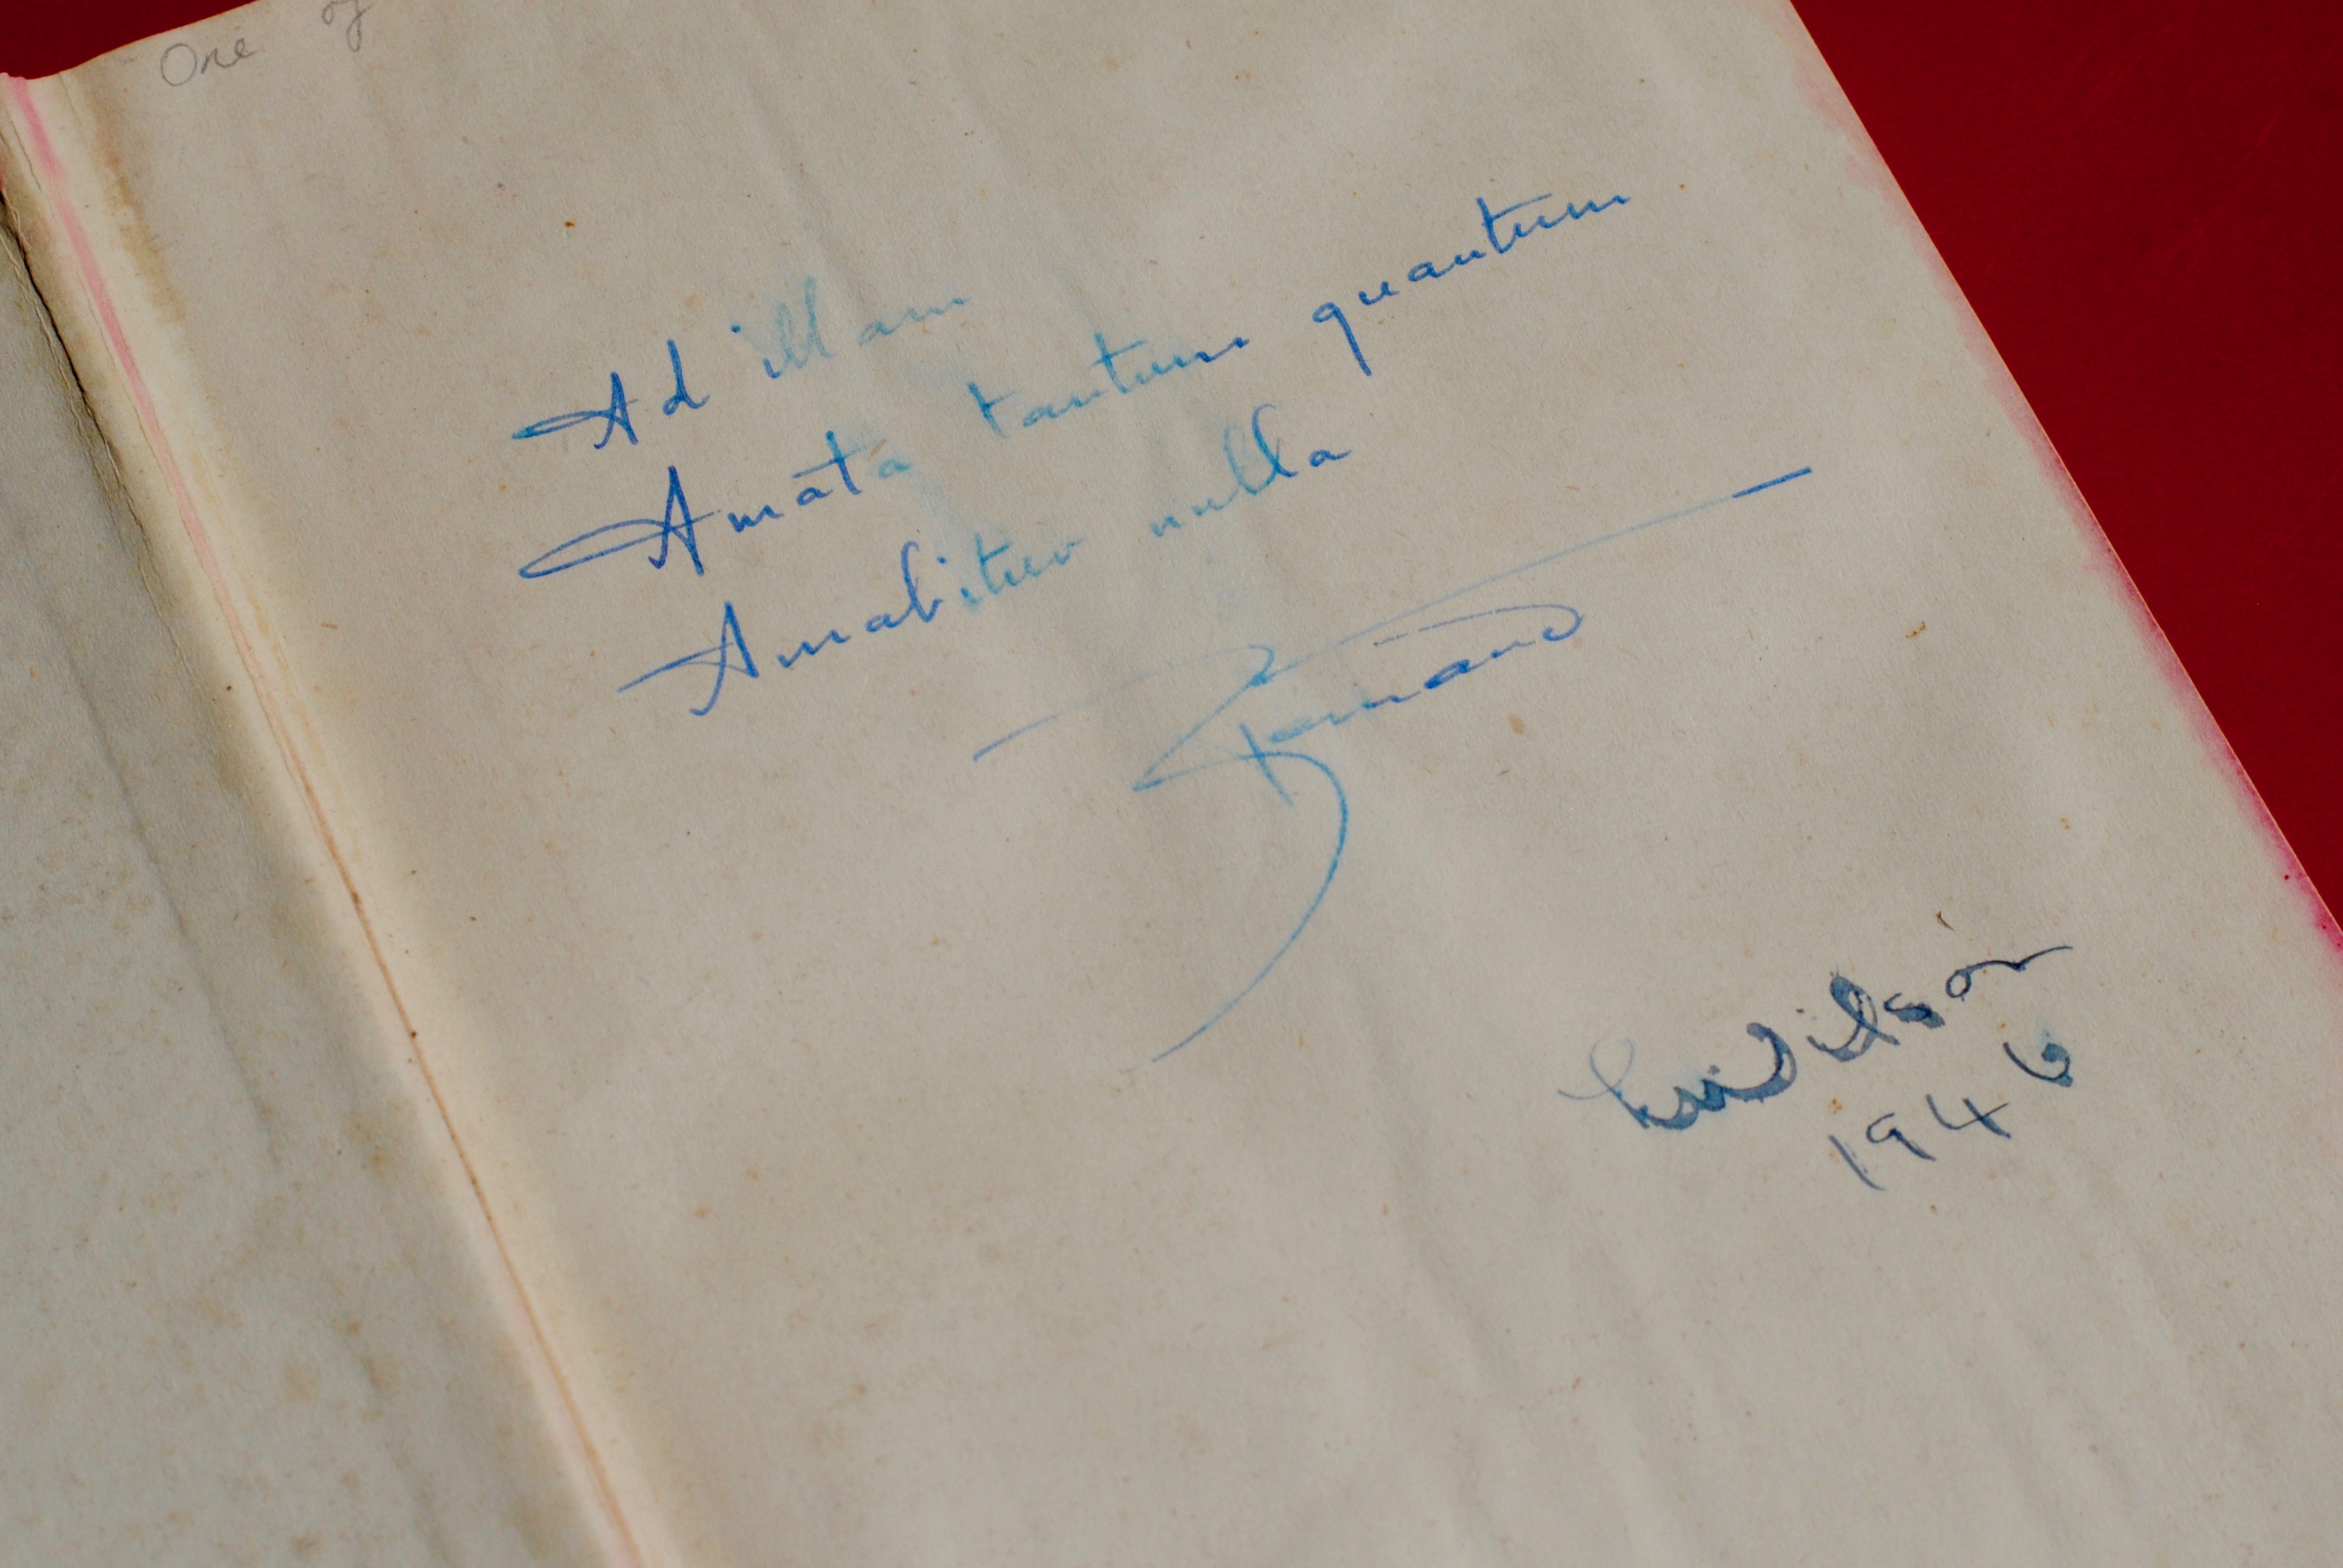 One of
Ad illam
Amata tantum quantum
Amabitur nulla
Wilson
1946